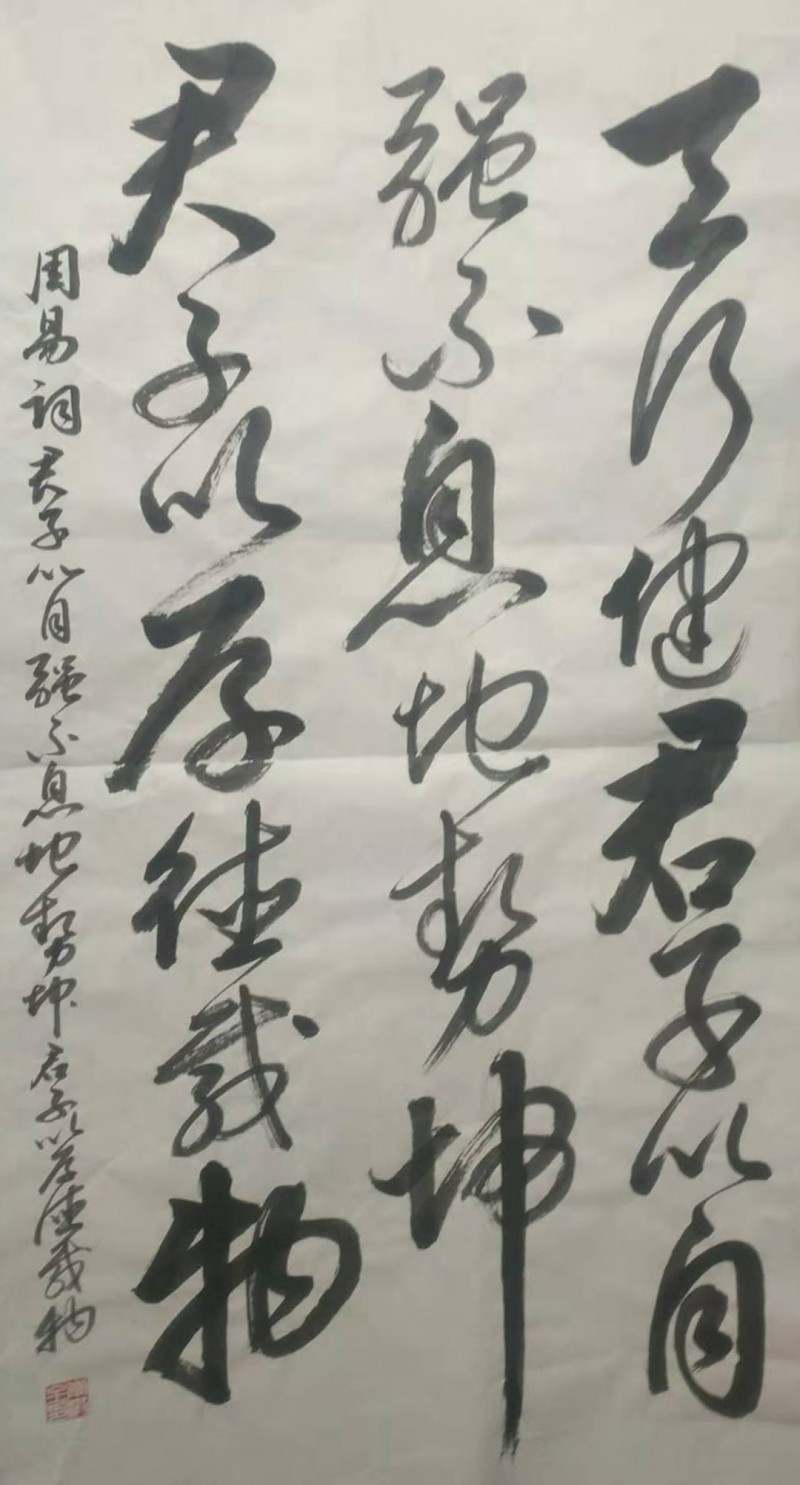 天行健君子以自
强不息地势坤
君子以厚德载物
周易词君子以自强不息地势坤君子以厚德载物